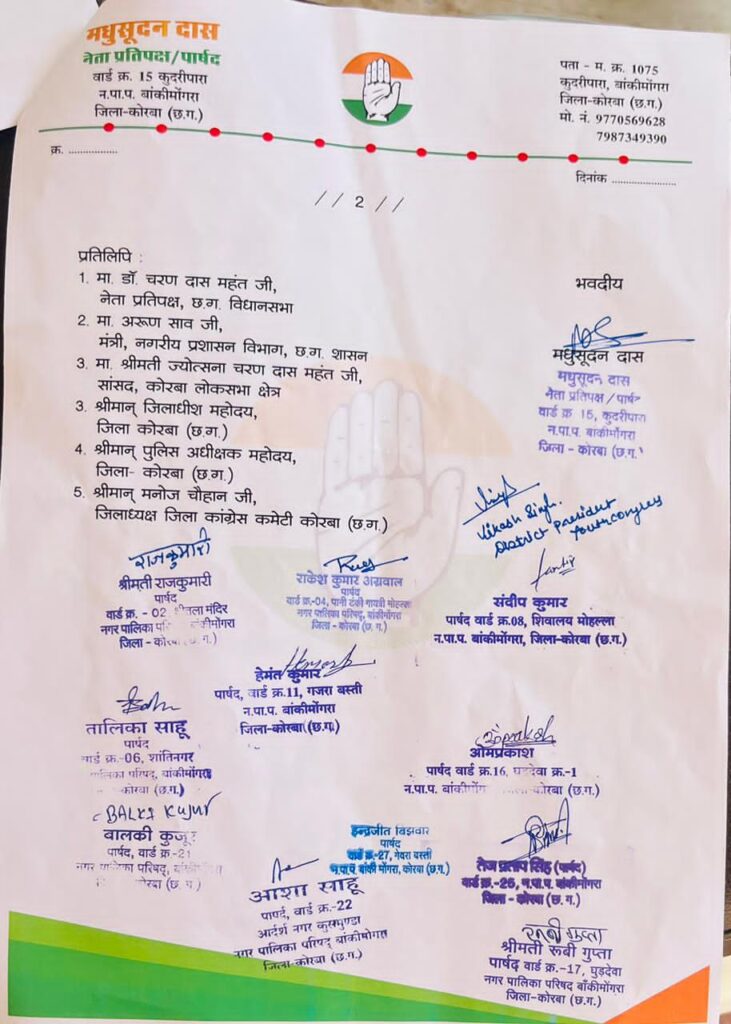 मधुसूदन दास
नेता प्रतिपक्ष/पार्षद
वार्ड क्र. 15 कुदरीपारा
न.पा.प. बांकीमोंगरा
जिला-कोरबा (छ.ग.)
पता - म. क्र. 1075
कुदरीपारा, बांकीमोंगरा
जिला-कोरबा (छ.ग.)
मो. नं. 9770569628
7987349390
क्र. ................
दिनांक .....................
// 2 //
प्रतिलिपि :
1. मा. डॉ. चरण दास महंत जी,
नेता प्रतिपक्ष, छ.ग. विधानसभा
2. मा. अरूण साव जी,
मंत्री, नगरीय प्रशासन विभाग, छ.ग. शासन
3. मा. श्रीमती ज्योत्सना चरण दास महंत जी,
सांसद, कोरबा लोकसभा क्षेत्र
3. श्रीमान् जिलाधीश महोदय,
जिला कोरबा (छ.ग.)
4. श्रीमान् पुलिस अधीक्षक महोदय,
जिला- कोरबा (छ.ग.)
5. श्रीमान् मनोज चौहान जी,
जिलाध्यक्ष जिला कांग्रेस कमेटी कोरबा (छ.ग.)
भवदीय
मधुसूदन दास
मधुसूदन दास
नेता प्रतिपक्ष/पार्षद
वार्ड क्र 15, कुदरीपारा
न.पा.प. बांकीमोंगरा
जिला - कोरबा (छ.ग.)
Vikash Singh.
District President
Youth congress
राजकुमारी
श्रीमती राजकुमारी
पार्षद
वार्ड क्र. - 02 मंदिर
नगर पालिका बांकीमोंगरा
जिला - कोरबा (छ.ग.)
राकेश कुमार अग्रवाल
पार्षद
वार्ड क्र.-04, पानी टंकी गायत्री मोहल्ला
नगर पालिका परिषद्, बांकीमोंगरा
जिला - कोरबा (छ.ग.)
संदीप कुमार
पार्षद वार्ड क्र.08, शिवालय मोहल्ला
न.पा.प. बांकीमोंगरा, जिला-कोरबा (छ.ग.)
हेमंत कुमार
पार्षद, वार्ड क्र.11, गजरा बस्ती
न.पा.प. बांकीमोंगरा
जिला-कोरबा (छ.ग.)
तालिका साहू
पार्षद
वार्ड क्र.-06, शांतिनगर
पालिका परिषद्, बांकीमोंगरा
कोरबा (छ.ग.)
ओमप्रकाश
पार्षद वार्ड क्र.16, घुड़देवा क्र.-1
न.पा.प. बांकीमोंग कोरबा (छ.ग.)
BALKI KUJUR
बालकी कुजूर
पार्षद, वार्ड क्र.-21
नगर पालिका परिषद्,
कोरबा (छ.ग.)
इन्द्रजीत बिझवार
पार्षद
वार्ड क्र.-27, गेवरा बस्ती
न.पा.प बांकी मोंगरा, कोरबा (छ.ग.)
तेज प्रताप सिंह (पार्षद)
वार्ड क्र.-25, न.पा.प. बांकीमोंगरा
जिला - कोरबा (छ. ग.)
आशा साहू
पार्षद, वार्ड क्र.-22
आदर्श नगर कुसमुण्डा
नगर पालिका परिषद् बांकीमोंगरा
जिला-कोरबा (छ.ग.)
रूबी गुप्ता
श्रीमती रूबी गुप्ता
पार्षद वार्ड क्र.-17, घुड़देवा
नगर पालिका परिषद बांकीमोंगरा
जिला-कोरबा (छ.ग.)